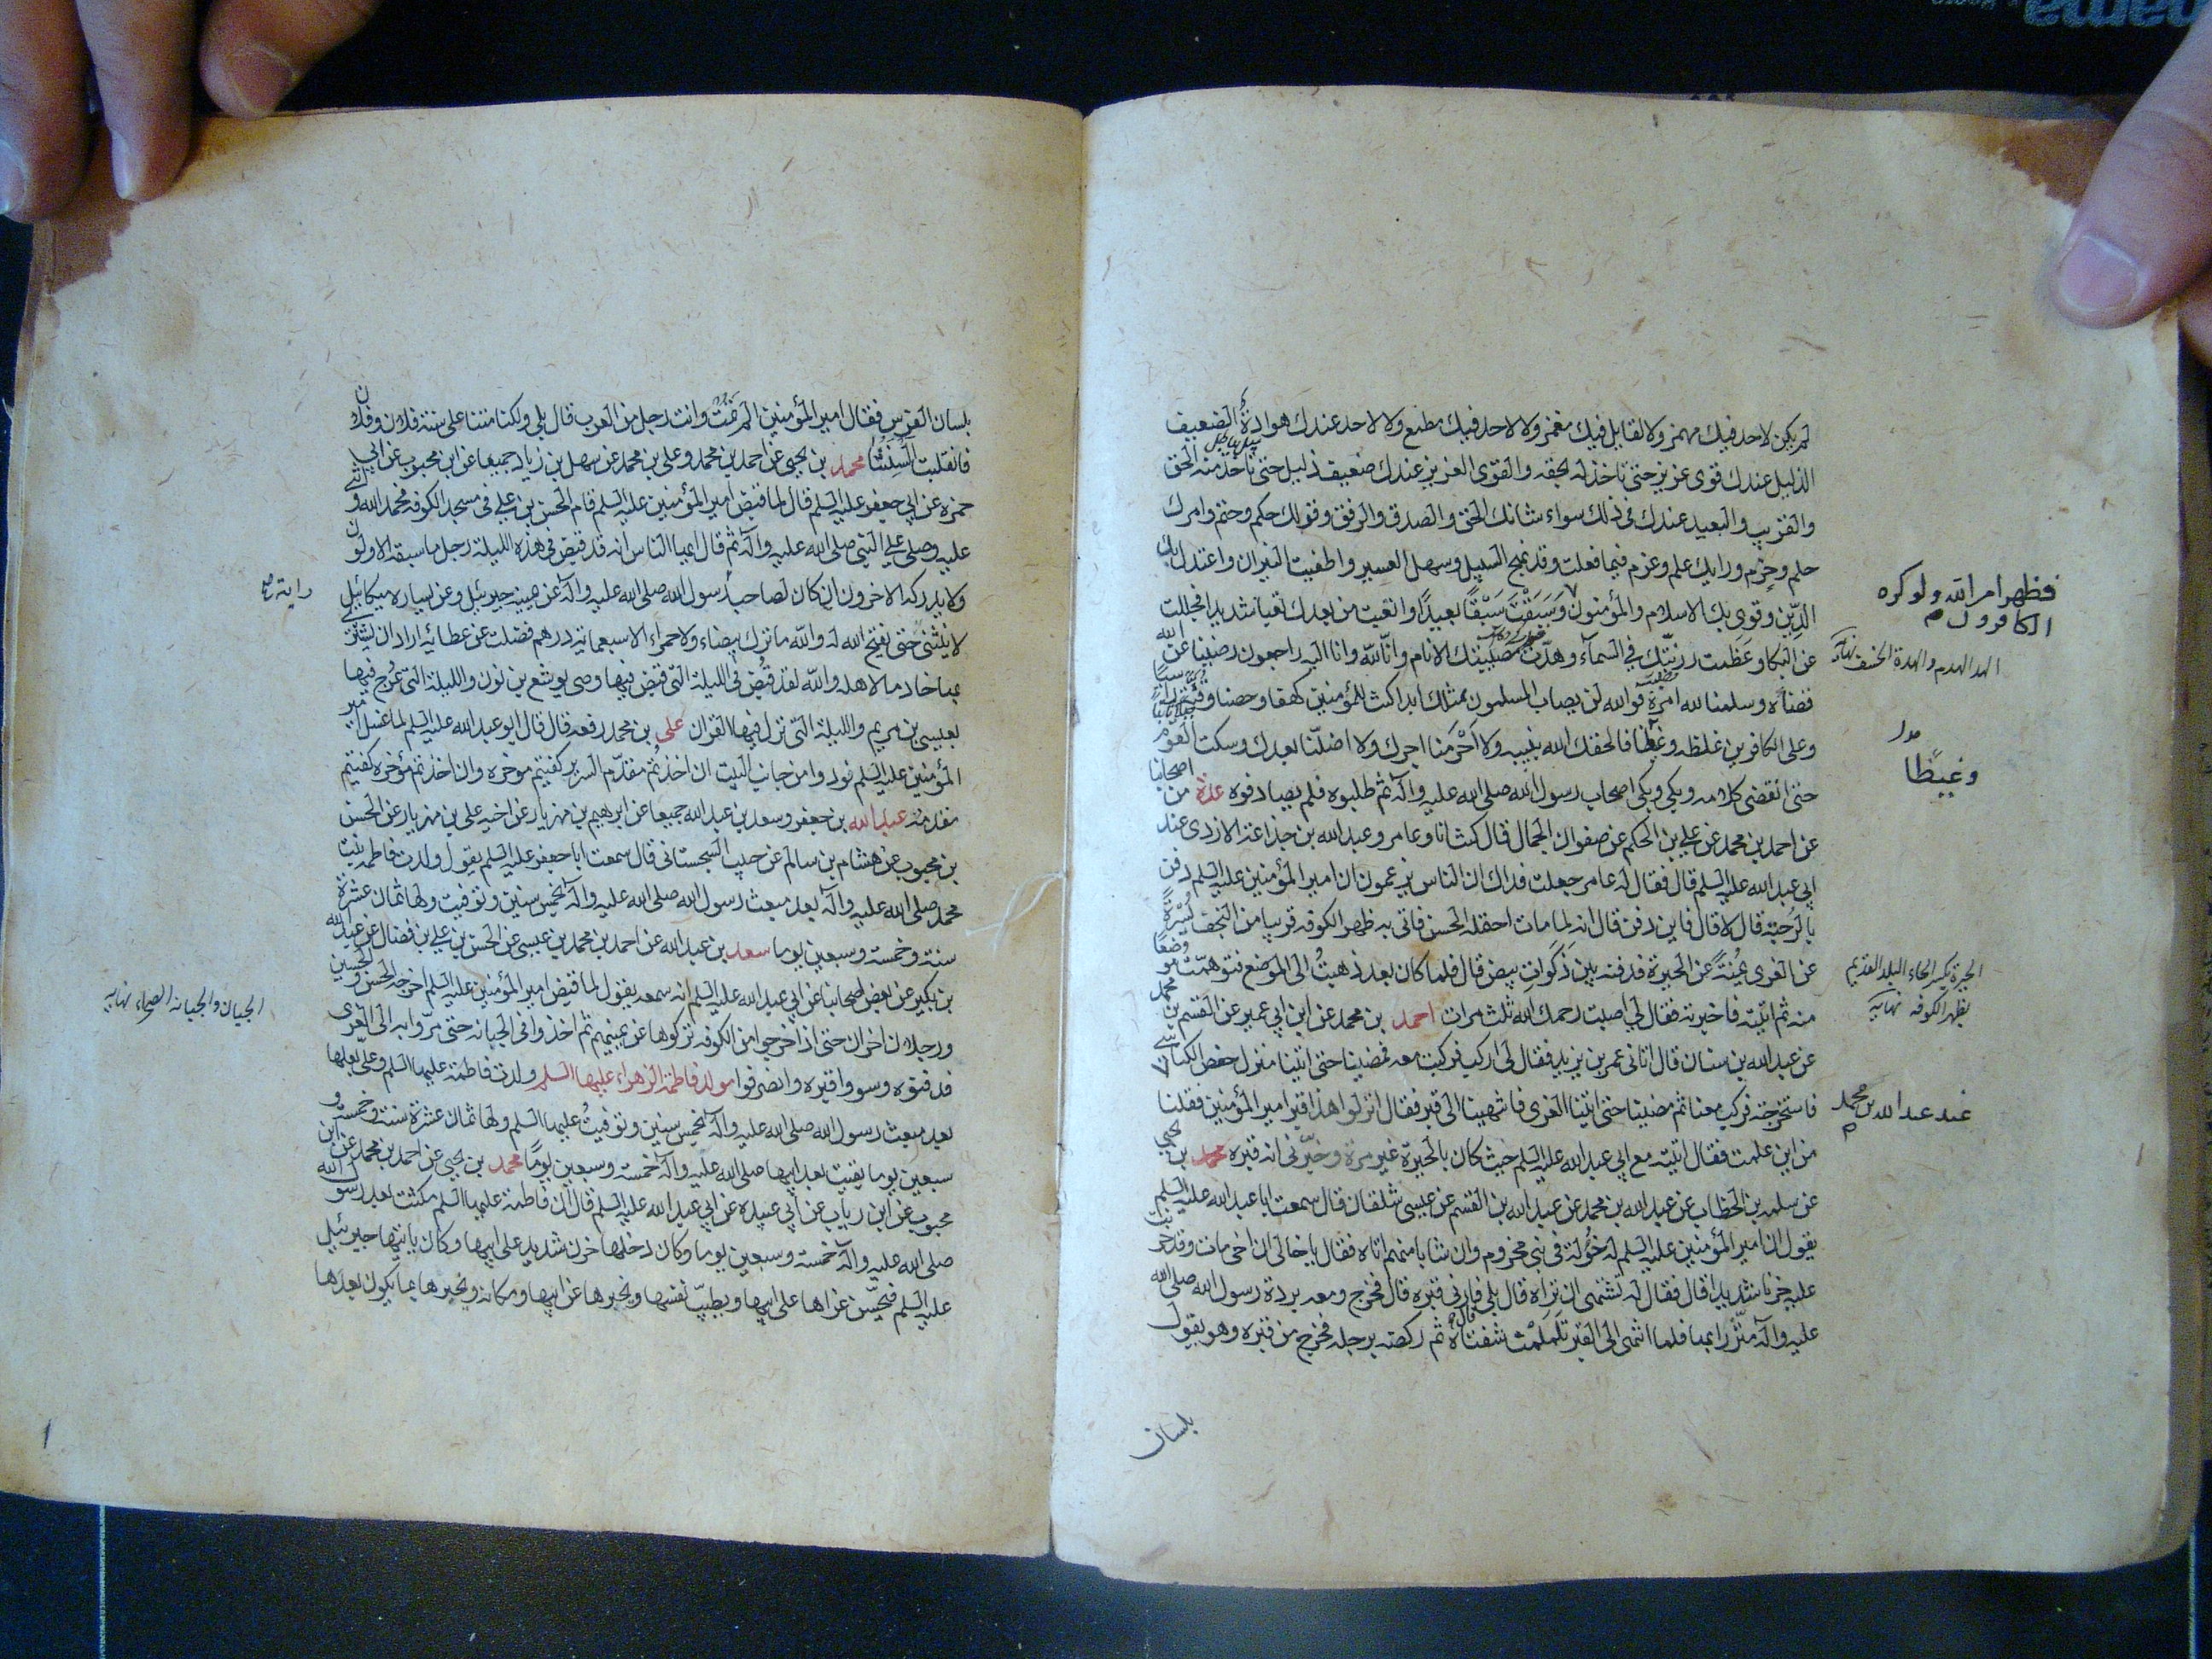 لم يكن لاحد فيك مهمز ولا لقايل فيك مغمز ولا لاحد فيك مطمع ولا لاحد عندك هوادة الضعيف
الذليل عندك قوى عزيز حتى تاخذ له بحقه والقوى العزيز عندك ضعيف ذليل حتى تاخذ منه الحق
والقريب والبعيد عندك فى ذلك سواء شانك الحق والصدق والرفق وقولك حكم وحتم وامرك
حلم وحزم ورايك علم وعزم فيما فعلت وقد نهج السبيل وسهل العسير واطفيت النيران واعتدل بك
الدين وقوى بك الاسلام والمؤمنون وسبقت سبقًا بعيدًا واتعبت من بعدك تعبا شديدا فجللت
عن البكا وعظمت رزيتك فى السمآء وهدّت مصيبتك الانام وانا لله وانا اليه راجعون رضينا عن الله
قضاه وسلمنا لله امره فوالله لن يصاب المسلمون بمثلك ابدا كنت للمؤمنين كهفا وحصنا
وعلى الكافرين غلظه وغيظا فالحقك الله بنبيه ولا احرمنا اجرك ولا اضلّنا بعدك وسكت القوم
حتى انقضى كلامه وبكى وبكى اصحاب رسول الله صلى الله عليه وآله ثم طلبوه فلم يصادفوه عدة من اصحابنا
عن احمد بن محمد عن على بن الحكم عن صفوان الجمال قال كنت انا وعامر وعبد الله بن جذاعة الازدى عند
ابى عبد الله عليه السلم قال فقال له عامر جعلت فداك ان الناس يزعمون ان امير المؤمنين عليه السلم دفن
بالرحبة قال لا قال فاين دفن قال انه لما مات احتمله الحسن فاتى به ظهر الكوفه قريبا من النجف يسرة
عن الغرى يمنة عن الحيرة فدفنه بين ذكوات بيض قال فلما كان بعد ذهبت الى الموضع فتوهمت موضعا
منه ثم اتيته فاخبرته فقال لى اصبت رحمك الله ثلث مرات احمد بن محمد عن ابن ابى عمير عن القسم بن محمد
عن عبد الله بن سنان قال اتانى عمر بن يزيد فقال لى اركب فركبت معه فمضينا حتى اتينا منزل حفص الكناسى
فاستخرجته فركب معنا ثم مضينا حتى اتينا الغرى فانتهينا الى قبر فقال انزلوا هذا قبر امير المؤمنين فقلنا
من اين علمت فقال اتيته مع ابى عبد الله عليه السلم حيث كان بالحيرة غير مرة وخبّرنى انه قبره محمد بن يحيى
عن سلمه بن الخطاب عن عبد الله بن محمد عن عبد الله بن القسم عن عيسى شلقان قال سمعت ابا عبد الله عليه السلم
يقول ان امير المؤمنين عليه السلم له خؤلة فى بنى مخزوم وان شابا منهم اتاه فقال يا خالى ان اخى مات وقد حزنت
عليه حزنا شديدا قال فقال له تشتهى ان تراه قال بلى فارنى قبره قال فخرج ومعه بردة رسول الله صلى الله
عليه وآله متزرا بها فلما انتهى الى القبر تلملمت شفتاه ثم ركضه برجله فخرج من قبره وهو يقول
بلسان
فظهر امر الله ولو كره
الكافرون
الهد الهدم والهدة الخسف نهايه
وغيظًا
الحيرة بكسر الحاء البلد القديم
بظهر الكوفه نهايه
عند عبد الله بن محمد
بلسان الفرس فقال امير المؤمنين الم تمت وانت رجل من العرب قال بلى ولكنا متنا على سنة فلان وفلان
فانقلبت السنتنا محمد بن يحيى عن احمد بن محمد وعلى بن محمد عن سهل بن زياد جميعا عن ابن محبوب عن ابى
حمزه عن ابى جعفر عليه السلم قال لما قبض امير المؤمنين عليه السلم قام الحسن بن على فى مسجد الكوفه فحمد الله واثنى
عليه وصلى على النبى صلى الله عليه وآله ثم قال ايها الناس انه قد قبض فى هذه الليلة رجل ما سبقه الاولون
ولا يدركه الاخرون ان كان لصاحب رسول الله صلى الله عليه وآله عن يمينه جبرئيل وعن يساره ميكائيل
لا ينثنى حتى يفتح الله له والله ما ترك بيضاء ولا حمراء الا سبعمائة درهم فضلت عن عطائه اراد ان يشترى
بها خادما لاهله والله لقد قبض فى الليلة التى قبض فيها وصى يوشع بن نون والليلة التى عرج فيها
بعيسى بن مريم والليلة التى نزل فيها القران على بن محمد رفعه قال قال ابو عبد الله عليه السلم لما غسل امير
المؤمنين عليه السلم نودوا من جانب البيت ان اخذتم مقدّم السرير كفيتم موخره وان اخذتم مؤخره كفيتم
مقدمه عبد الله بن جعفر وسعد بن عبد الله جميعا عن ابرهيم بن مهزيار عن اخيه على بن مهزيار عن الحسن
بن محبوب عن هشام بن سالم عن حبيب السجستانى قال سمعت ابا جعفر عليه السلم يقول ولدت فاطمه بنت
محمد صلى الله عليه وآله بعد مبعث رسول الله صلى الله عليه وآله بخمس سنين وتوفيت ولها ثمان عشرة
سنة وخمسة وسبعين يوما سعد بن عبد الله عن احمد بن محمد بن عيسى عن الحسن بن على بن فضال عن عبد الله
بن بكير عن بعض اصحابنا عن ابى عبد الله عليه السلم انه سمعه يقول لما قبض امير المؤمنين عليه السلم اخرجه الحسن والحسين
ورجلان اخران حتى اذا خرجوا من الكوفه تركوها عن يمينهم ثم اخذوا فى الجبانه حتى مرّوا به الى الغرى
فدفنوه وسووا قبره وانصرفوا مولد فاطمة الزهراء عليها السلم ولدت فاطمة عليها السلم وعلى بعلها
بعد مبعث رسول الله صلى الله عليه وآله بخمس سنين وتوفيت عليها السلم ولها ثمان عشرة سنة وخمسة و
سبعين يوما بقيت بعد ابيها صلى الله عليه وآله خمسة وسبعين يومًا محمد بن يحيى عن احمد بن محمد عن ابن
محبوب عن ابن رياب عن ابى عبيده عن ابى عبد الله عليه السلم قال ان فاطمة عليها السلم مكثت بعد رسول الله
صلى الله عليه وآله خمسة وسبعين يوما وكان دخلها حزن شديد على ابيها وكان ياتيها جبرئيل
عليه السلم فيحسّن عزاها على ابيها ويطيّب نفسها ويخبرها عن ابيها ومكانه ويخبرها بما يكون بعدها
الجبان والجبانه الصحراء نهايه